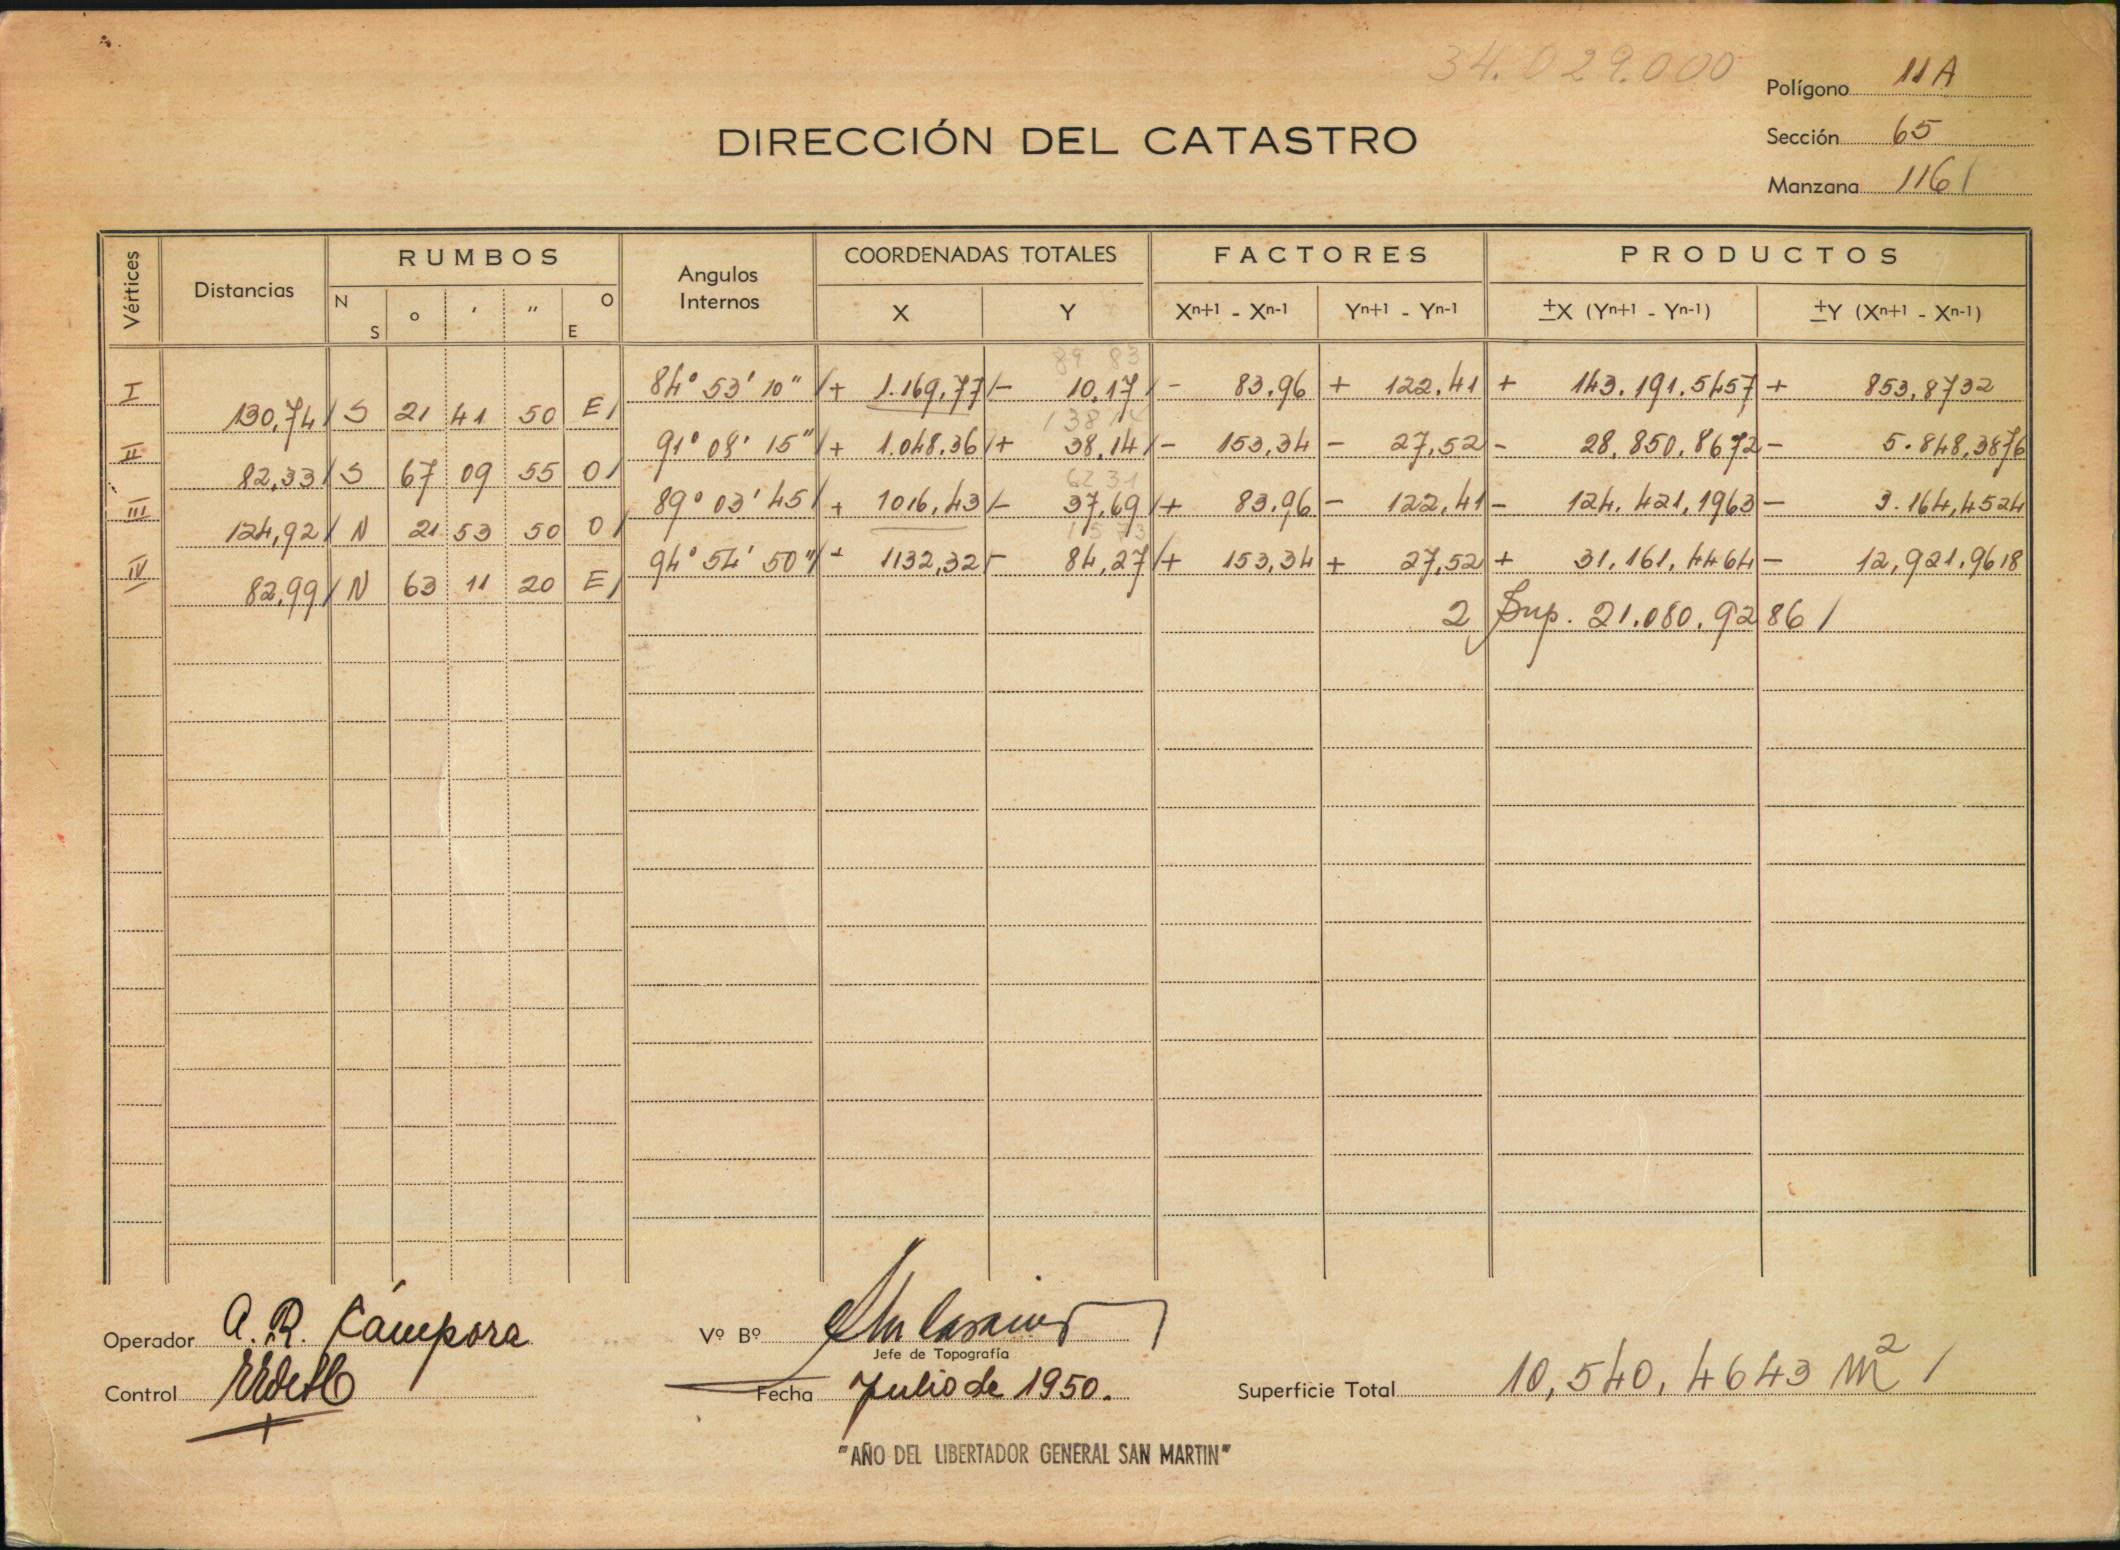 34.029.000
Polígono 11A
DIRECCIÓN DEL CATASTRO
Sección 65
Manzana 116/
Vértices Distancias RUMBOS Angulos Internos COORDENADAS TOTALES FACTORES PRODUCTOS
N S o ' " O E X Y Xn+1 - Xn-1 Yn+1 - Yn-1 ±X (Yn+1 - Yn-1) ±Y (Xn+1 - Xn-1)
89 83
I 84° 53' 10" / + 1.169,77 / - 10,17 / - 83,96 + 122,41 + 143.191,5457 + 853,8732
130,74 / S 21 41 50 E /
138 14
II 91° 08' 15" / + 1.048,36 / + 38,14 / - 153,34 - 27,52 - 28.850,8672 - 5.848,3876
82,33 / S 67 09 55 O /
62 31
III 89° 03' 45 / + 1016,43 / - 37,69 / + 83,96 - 122,41 - 124.421,1963 - 3.164,4524
124,92 / N 21 53 50 O /
15 73
IV 94° 54' 50" / + 1132,32 - 84,27 / + 153,34 + 27,52 + 31.161,4464 - 12,921,9618
82,99 / N 63 11 20 E /
2 Sup. 21.080,9286 /
Operador A. R. Cámpora
Vº Bº
Jefe de Topografía
Control
Fecha Julio de 1950.
Superficie Total 10,540,4643 m2 /
"AÑO DEL LIBERTADOR GENERAL SAN MARTIN"